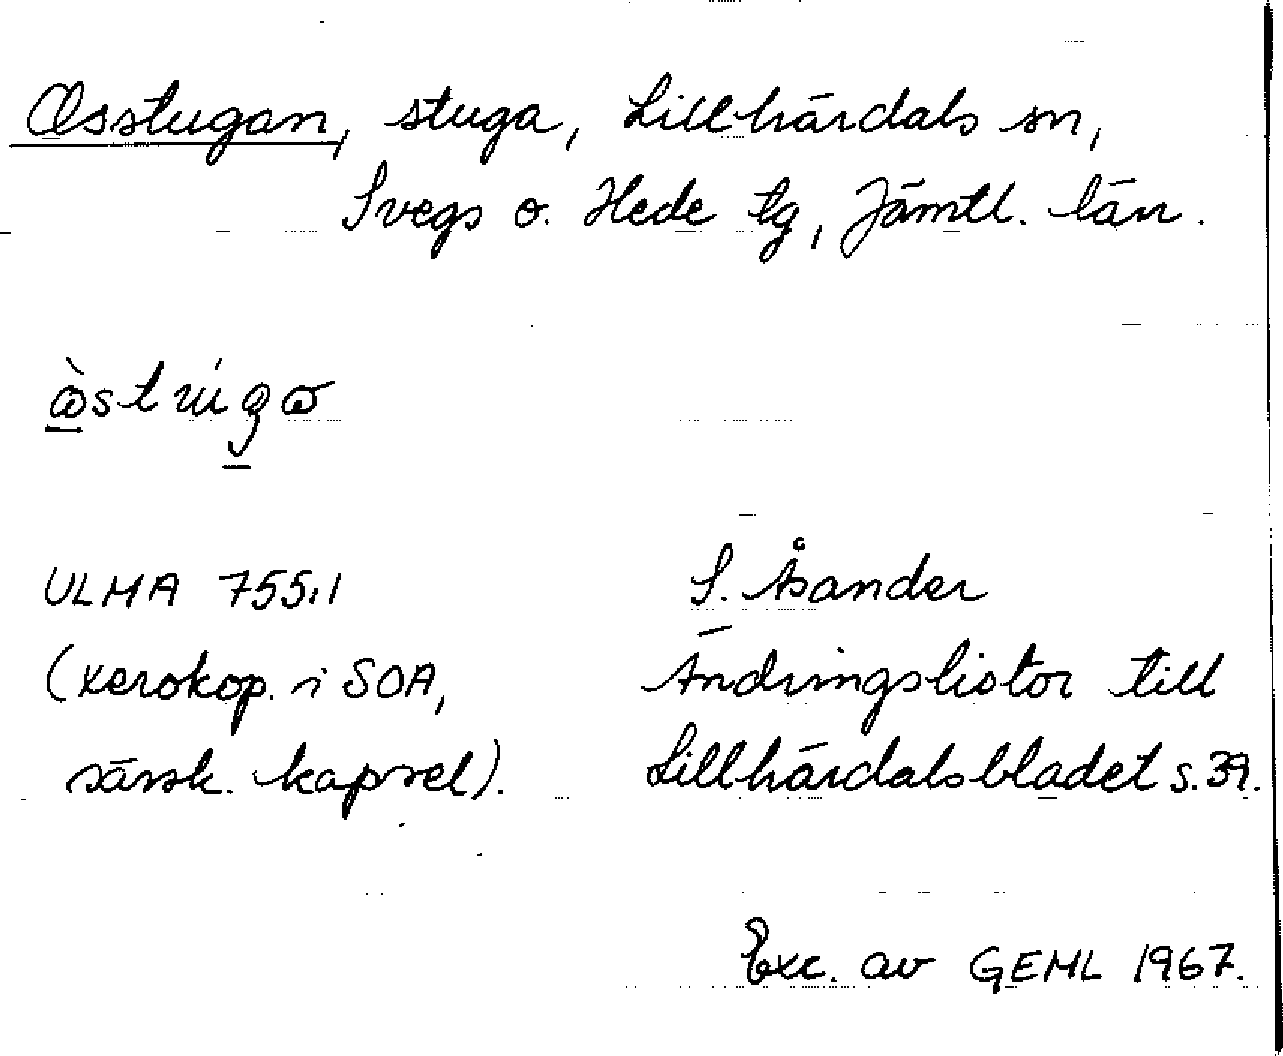 Osstugan, stuga, Lillhärdals sn,
Svegs o. Hede tg, Jämtl. län.
ULMA 755:1
(xerokop. i SOA,
särsk. kapsel).
S. Åsander
Ändringslistor till
Lillhärdalsbladet s. 39.
Exc. av GEML 1967.